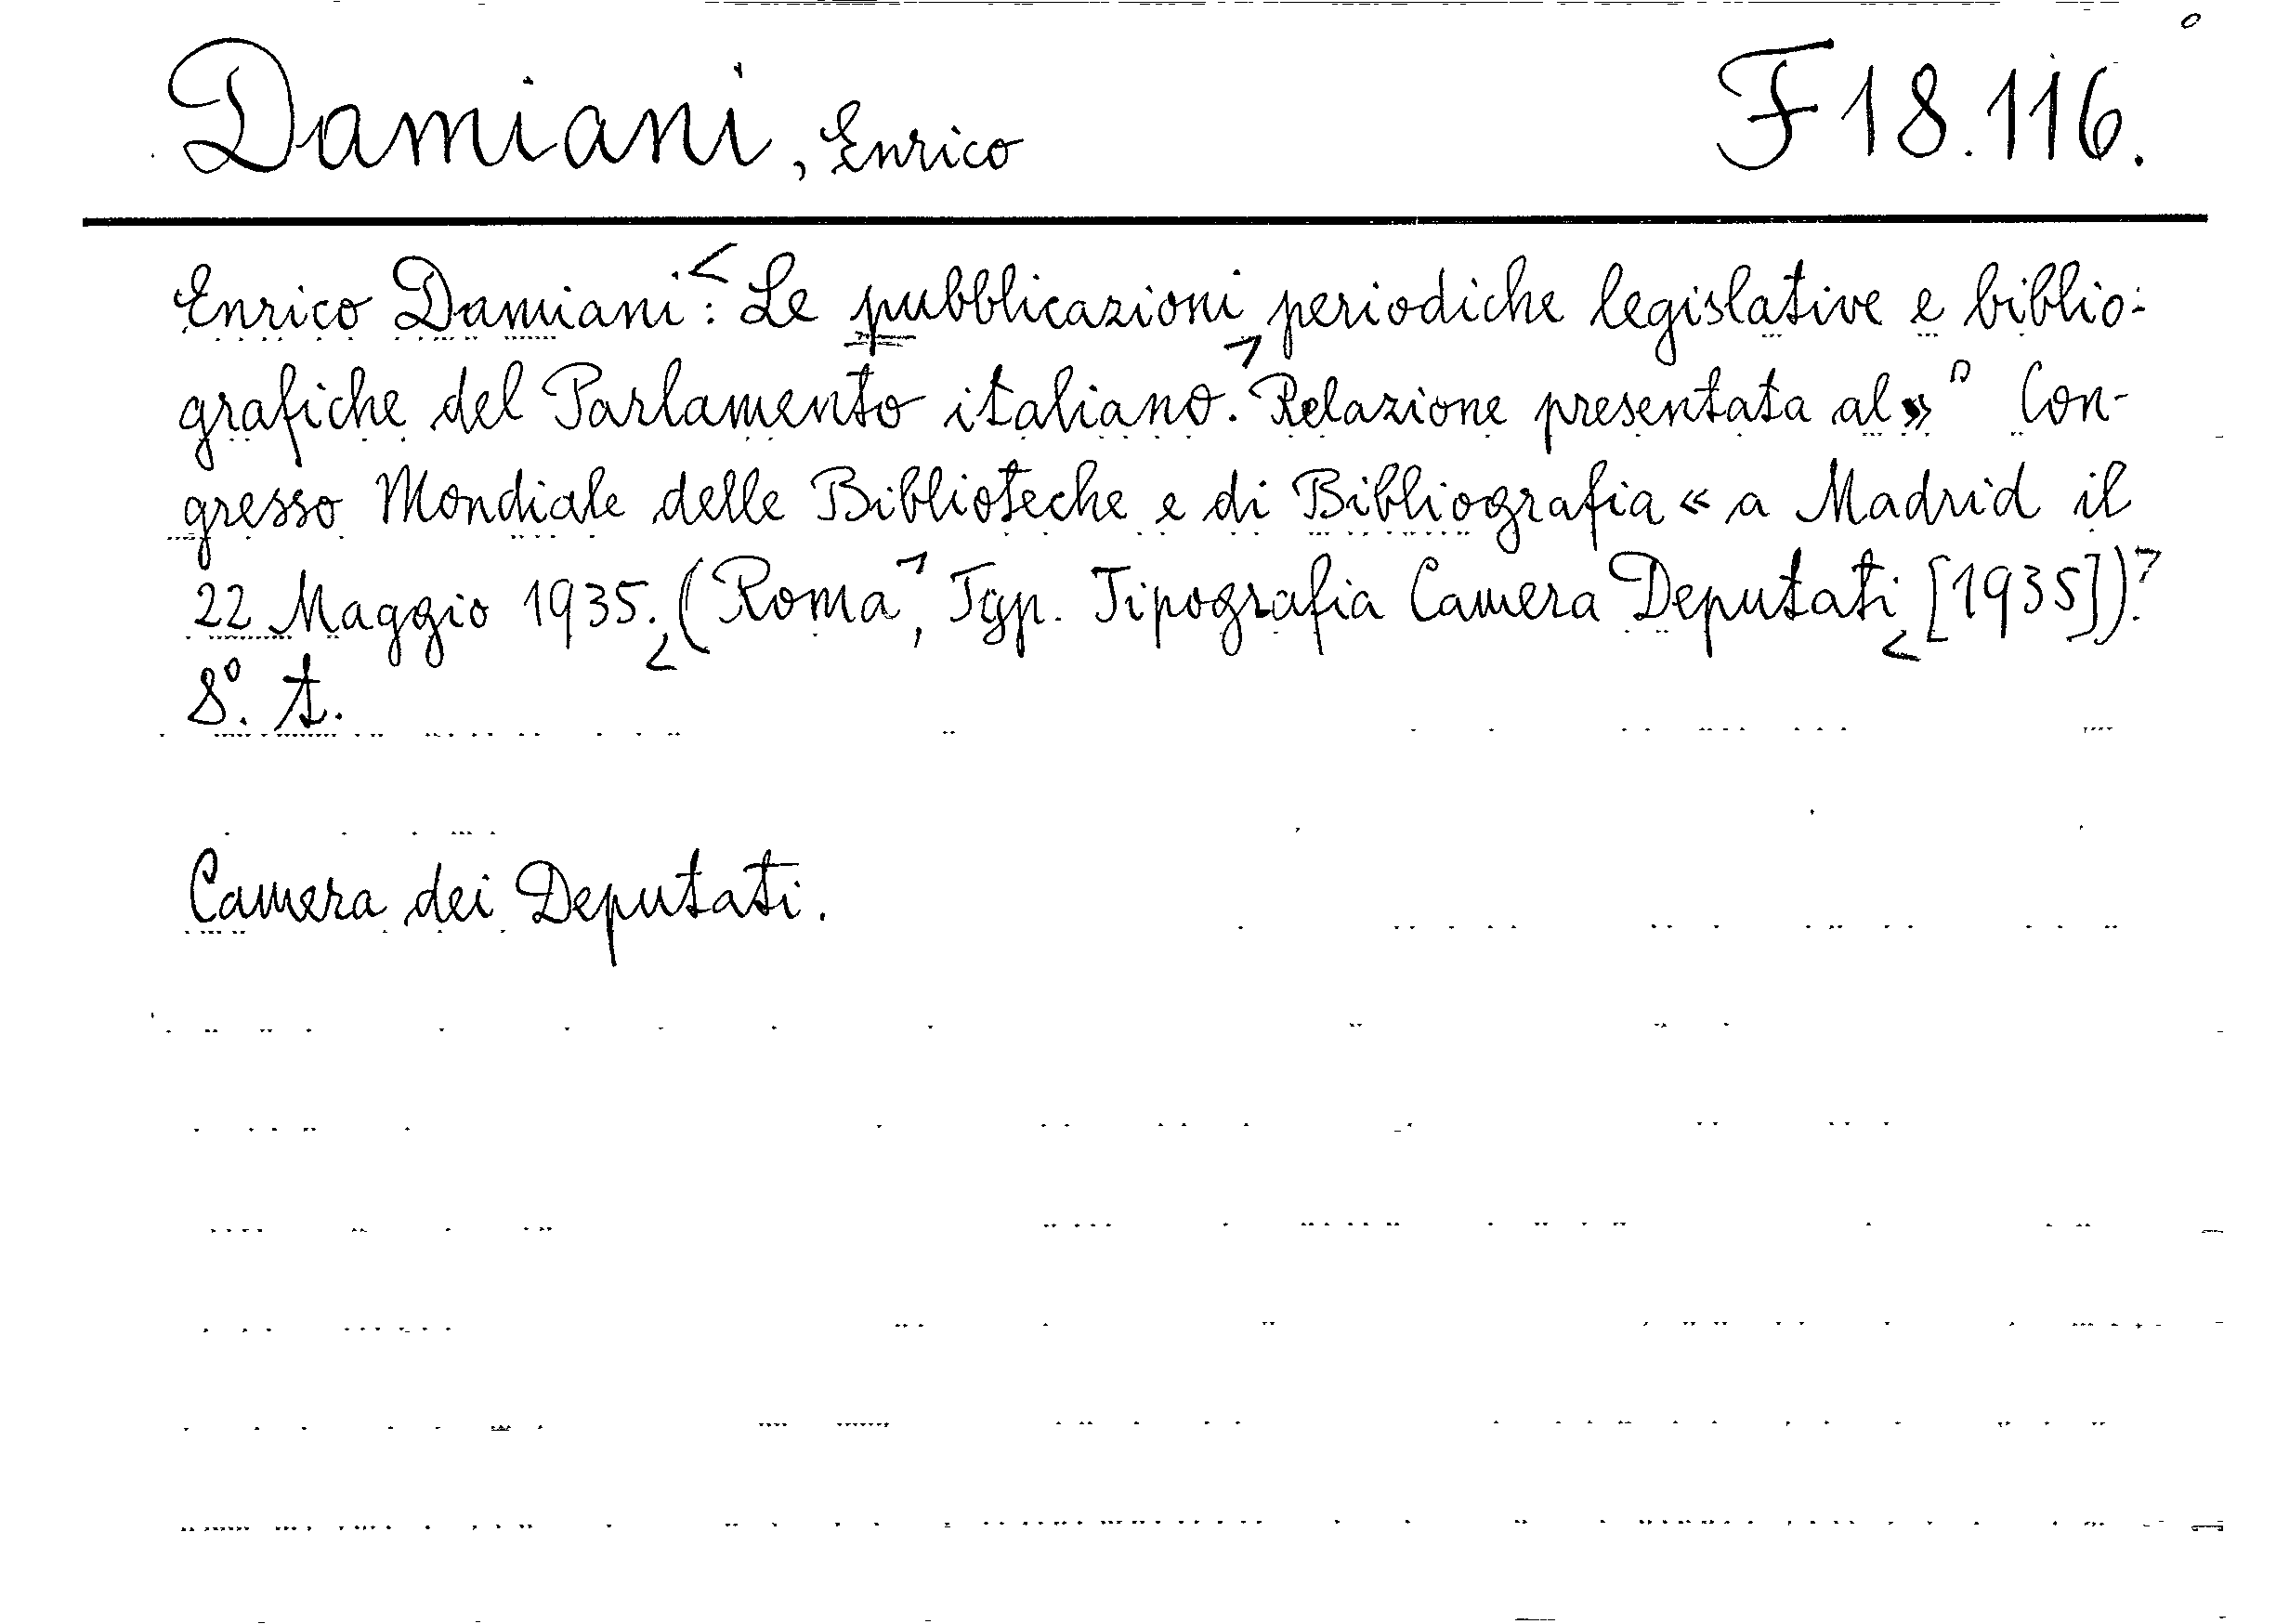 Damiani, Enrico F 18.116.
Enrico Damiani: Le pubblicazioni periodiche legislative e biblio-
grafiche del Parlamento italiano. Relazione presentata al » ° Con-
gresso Mondiale delle Biblioteche e di Bibliografia « a Madrid il
22 Maggio 1935. (Roma, Typ. Tipografia Camera Deputati [1935]).
8°. t.
Camera dei Deputati.